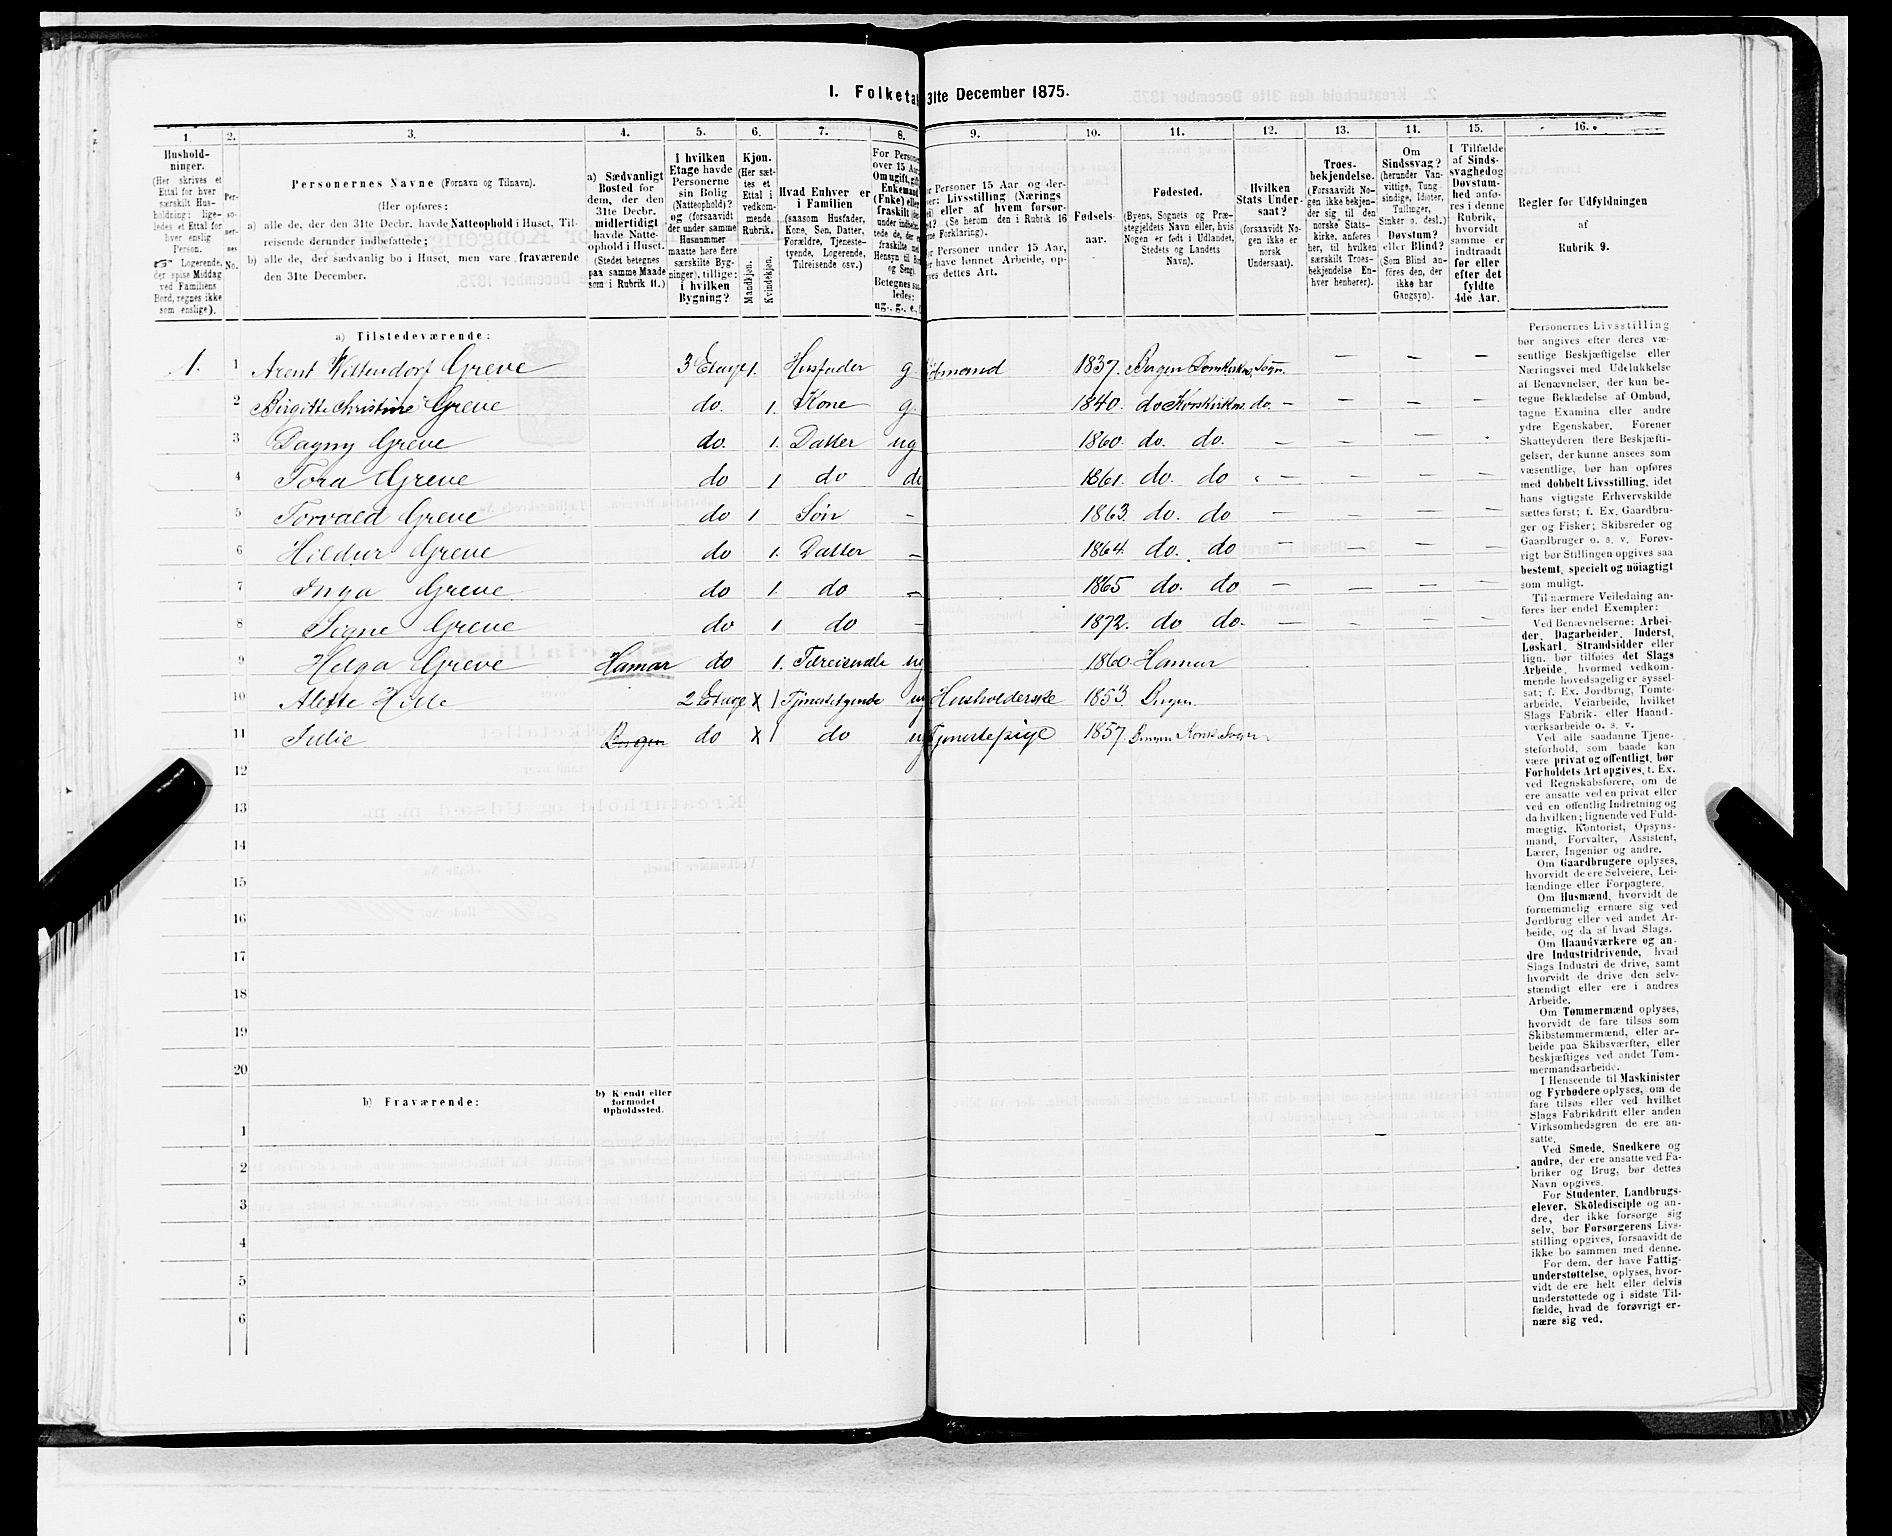 1. Folketa 31te December 1875.
1. 2. 3. 4. 5. 6. 7. 8. 9. 10. 11. 12. 13. 14. 15. 16.
Hushold-
ninger.
(Her skrives et
Ettal for hver
særskilt Hus-
holdning; lige-
ledes et Ettal for
hver enslig
Person.
☞ Logerende,
der spise Middag
ved Familiens
Bord, regnes ikke
som enslige).
Per-
so-
ner-
nes
No.
Personernes Navne (Fornavn og Tilnavn).
(Her opføres:
a) alle de, der den 31te Decbr. havde Natteophold i Huset, Til-
reisende derunder indbefattede;
b) alle de, der sædvanlig bo i Huset, men vare fraværende
den 31te December.
a) Sædvanligt
Bosted for
dem, der den
31te Decbr.
midlertidigt
havde Natte-
ophold i Huset.
(Stedet betegnes
paa samme Maade
som i Rubrik 11.)
I hvilken
Etage havde
Personerne
sin Bolig
(Natteophold)?
og (forsaavidt
der under samme
Husnummer
maatte høre flere
særskilte Byg-
ninger), tillige:
i hvilken
Bygning?
Kjøn.
(Her sæt-
tes et
Ettal i
vedkom-
mende
Rubrik.
Mandkjøn.
Kvindekjøn.
Hvad Enhver er
i Familien
(saasom Husfader,
Kone, Søn, Datter,
Forældre, Tjeneste-
tyende, Logerende,
Tilreisende osv.)
For Persone
over 15 Aar
Om ugift, gift
Enkemand
(Fnke) eller
fraskilt
Betegnes saa
ledes:
ug., g., e., f
r Personer 15 Aar og der-
ver: Livsstilling (Nærings
ei) eller af hvem forsør-
get? (Se herom den i Rubrik 16
ne Forklaring).
r Personer under 15 Aar,
er have lønnet Arbeide, op-
ves dettes Art.
Fødsels-
aar.
Fødested.
(Byens, Sognets og Præ-
stegjeldets Navn eller, hvis
Nogen er født i Udlandet,
Stedets og Landets
Navn).
Hvilken
Stats Under-
saat?
(forsaavidt No-
gen ikke er
norsk
Undersaat).
Troes-
bekjendelse.
(Forsaavidt No-
gen ikke bekjen-
der sig til den
norske Stats-
kirke, anføres
her, til hvilken
særskilt Troes-
bekjendelse En-
hver henhører).
Om
Sindssvag?
(herunder Van-
vittige, Tung
sindige, Idioter,
Tullinger,
Sinker o. desl.)
Døvstum?
eller Blind?
(Som Blind an-
føres den, der
ikke har
Gangsyn).
I Tilfælde
af Sinds-
svaghed og
Døvstum-
hed anfø-
res i denne
Rubrik,
hvorvidt
samme er
indtraadt
før eller
efter det
fyldte
4de Aar.
Regler før Udfyldningen
af
Rubrik 9.
a) Tilstedeværende:
1. 1 Arent Wittendorf Greve 3 Etage 1. Husfader g. 1837. Bergen Domkirkn. Sogn.
2 Birgitte Christine Greve do. 1. Kone g. 1840. do Korskirkn. do. —
3 Dagny Greve do. 1. Datter ug 1860. do. do. — — —
4 Tora Greve do 1 do do 1861. do. do — — —
5 Torvald Greve do 1 Søn — 1863. do. do — — — —
6 Hildur Greve do 1. Datter — 1864. do. do — — — —
7 Inga Greve do 1. do — 1865 do. do — — — —
8 Signe Greve do 1 do — 1872. do do. — — — —
9 Helga Greve Hamar do 1. Tilreisende ug 1860. Hamar
10 Alette Hille 2 Etage x 1 Tjenestetyende ug Husholderske 1853 Bergen
11 Julie Bergen do x 1 do ug Tjenestepige 1857. Bergen Kors Sogn
12
13
14
15
16
17
18
19
20
b) Fraværende:
b) Kjendt eller
formodet
Opholdssted.
1
2
3
4
5
6
Personernes Livsstilling
bør angives efter deres væ-
sentlige Beskjæftigelse eller
Næringsvei med Udelukkelse
af Benævnelser, der kun be-
tegne Beklædelse af Ombud,
tagne Examina eller andre
ydre Egenskaber. Forener
Skatteyderen flere Beskjæfti-
gelser, der kunne ansees som
væsentlige, bør han opføres
med dobbelt Livsstilling, idet
hans vigtigste Erhvervskilde
sættes først; f. Ex. Gaardbru-
ger og Fisker; Skibsreder og
Gaardbruger o. s. v. Forøv-
rigt bør Stillingen opgives saa
bestemt, specielt og nöiagtigt
som muligt.
Til nærmere Veiledning an-
føres her endel Exempler:
Ved Benævnelserne: Arbei-
der, Dagarbeider, Inderst,
Løskarl, Strandsidder eller
lign. bør tilføies det Slags
Arbeide, hvormed vedkom-
mende hovedsagelig er syssel-
sat; f. Ex. Jordbrug, Tomte-
arbeide, Veiarbeide, hvilket
Slags Fabrik- eller Haand-
værksarbeide o. s. v.
Ved alle saadanne Tjene-
steforhold, som baade kan
være privat og offentligt, bør
Forholdets Art opgives, t. Ex.
ved Regnskabsførere, om de
ere ansatte ved en privat eller
ved en offentlig Indretning og
da hvilken; lignende ved Fuld-
mægtig, Kontorist, Opsyns-
mand, Forvalter, Assistent,
Lærer, Ingeniør og andre.
Om Gaardbrugere oplyses,
hvorvidt de ere Selveiere, Lei-
lændinge eller Forpagtere.
Om Husmænd, hvorvidt de
fornemmelig ernære sig ved
Jordbrug eller ved andet Ar-
beide, og da af hvad Slags.
Om Haandværkere og an-
dre Industridrivende, hvad
Slags Industri de drive, samt
hvorvidt de drive den selv-
stændigt eller ere i andres
Arbeide.
Om Tømmermænd oplyses,
hvorvidt de fare tilsøs som
Skibstømmermænd, eller ar-
beide paa Skibsværfter, eller
beskjæftiges ved andet Tøm-
mermandsarbeide.
I Henseende til Maskinister
og Fyrbødere oplyses, om de
fare tilsøs eller ved hvilket
Slags Fabrikdrift eller anden
Virksomhedsgren de ere an-
satte.
Ved Smede, Snedkere og
andre, der ere ansatte ved Fa-
briker og Brug, bør dettes
Navn opgives.
For Studenter, Landbrugs-
elever, Skoledisciple og an-
dre, der ikke forsørge sig
selv, bør Forsørgerens Livs-
stilling opgives, forsaavidt de
ikke bo sammen med denne.
For dem, der have Fattig-
understøttelse, oplyses, hvor-
vidt de ere helt eller delvis
understøttede og i sidste Til-
fælde, hvad de forøvrigt er-
nære sig ved.